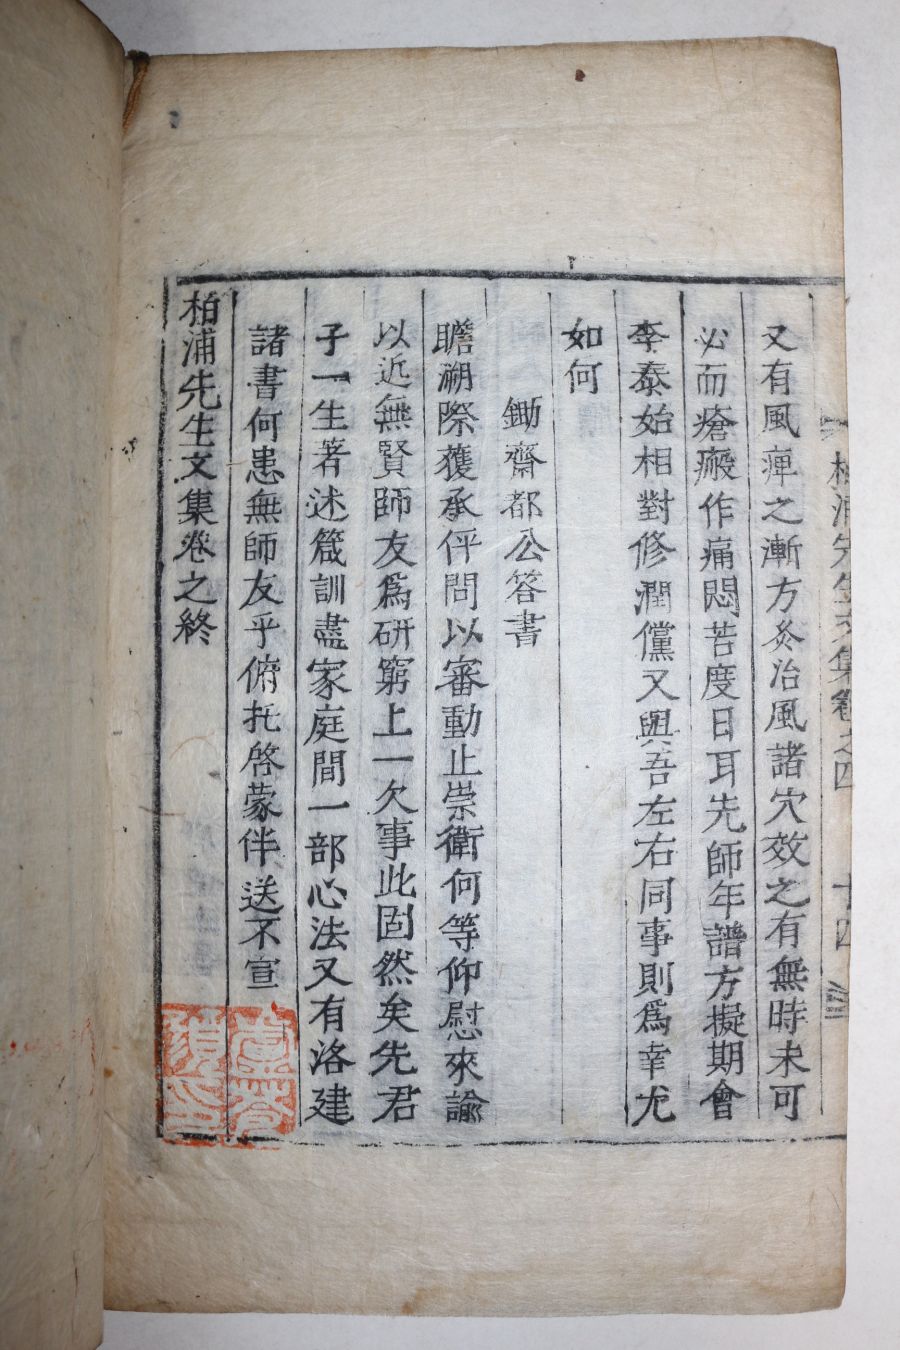 柏浦先生文集卷之四 十四
又有風痺之漸方灸治風諸穴效之有無時未可
必而瘡瘢作痛悶苦度日耳先師年譜方擬期會
李泰始相對修潤儻又與吾左右同事則爲幸尤
如何
鋤齋都公答書
瞻溯際獲承伻問以審動止崇衛何等仰慰來諭
以近無賢師友爲硏窮上一欠事此固然矣先君
子一生著述箴訓盡家庭間一部心法又有洛建
諸書何患無師友乎俯托啓蒙伴送不宣
柏浦先生文集卷之終